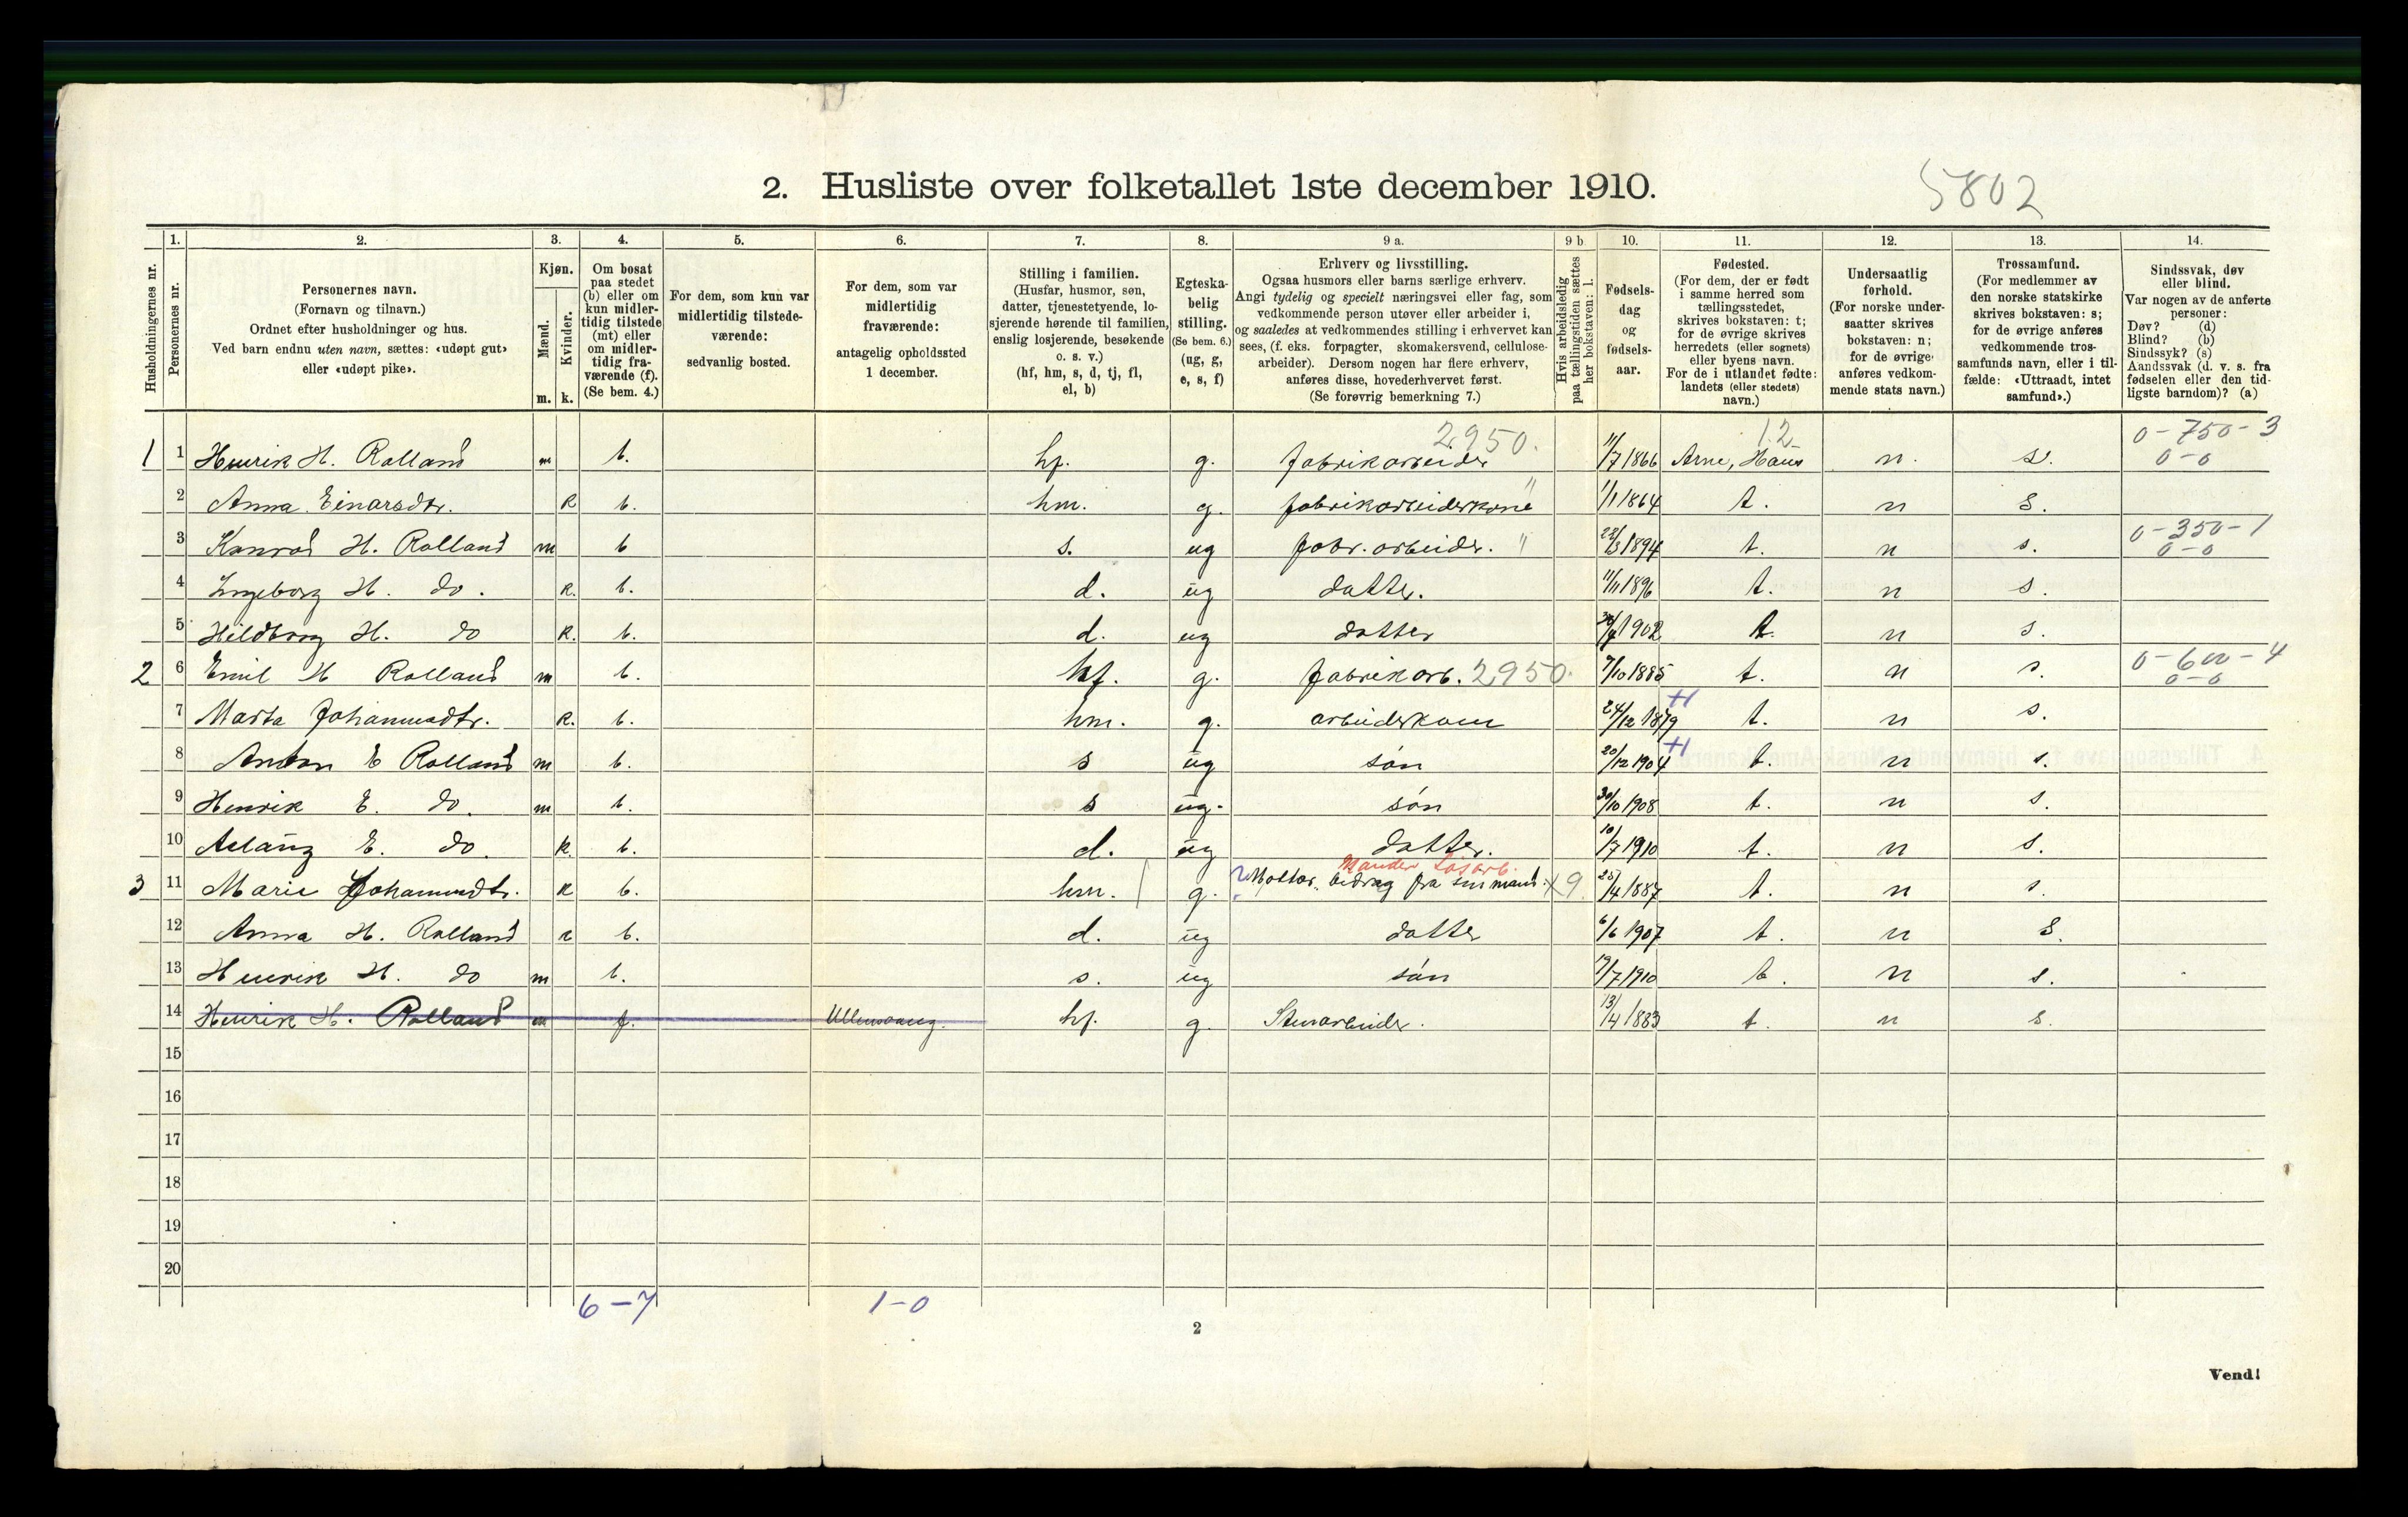 2. Husliste over folketallet 1ste december 1910.
5802
Husholdningernes nr.
1.
Personernes nr.
2.
Personernes navn.
(Fornavn og tilnavn.)
Ordnet efter husholdninger og hus.
Ved barn endnu uten navn, sættes: «udøpt gut»
eller «udøpt pike».
3.
Kjøn.
Mænd.
Kvinder.
m. k.
4.
Om bosat
paa stedet
(b) eller om
kun midler-
tidig tilstede
(mt) eller
om midler-
tidig fra-
værende (f).
(Se bem. 4.)
5.
For dem, som kun var
midlertidig tilstede-
værende:
sedvanlig bosted.
6.
For dem, som var
midlertidig
fraværende:
antagelig opholdssted
1 december.
7.
Stilling i familien.
(Husfar, husmor, søn,
datter, tjenestetyende, lo-
sjerende hørende til familien,
enslig losjerende, besøkende
o. s. v.)
(hf, hm, s, d, tj, fl,
el, b)
8.
Egteska-
belig
stilling.
(Se bem. 6.)
(ug, g,
e, s, f)
9 a.
Erhverv og livsstilling.
Ogsaa husmors eller barns særlige erhverv.
Angi tydelig og specielt næringsvei eller fag, som
vedkommende person utøver eller arbeider i,
og saaledes at vedkommendes stilling i erhvervet kan
sees, (f. eks. forpagter, skomakersvend, cellulose-
arbeider). Dersom nogen har flere erhverv,
anføres disse, hovederhvervet først.
(Se forøvrig bemerkning 7.)
9 b
Hvis arbeidsledig
paa tællingstiden sættes
her bokstaven: l.
10.
Fødsels-
dag
og
fødsels-
aar.
11.
Fødested.
(For dem, der er født
i samme herred som
tællingsstedet,
skrives bokstaven: t;
for de øvrige skrives
herredets (eller sognets)
eller byens navn.
For de i utlandet fødte:
landets (eller stedets)
navn.)
12.
Undersaatlig
forhold.
(For norske under-
saatter skrives
bokstaven: n;
for de øvrige
anføres vedkom-
mende stats navn.)
13.
Trossamfund.
(For medlemmer av
den norske statskirke
skrives bokstaven: s;
for de øvrige anføres
vedkommende tros-
samfunds navn, eller i til-
fælde: «Uttraadt, intet
samfund».)
14.
Sindssvak, døv
eller blind.
Var nogen av de anførte
personer:
Døv? (d)
Blind? (b)
Sindssyk? (s)
Aandssvak (d. v. s. fra
fødselen eller den tid-
ligste barndom)? (a)
2950. 12 0-750-3
1 1 Henrik H. Rolland m b. hf. g. fabrikarbeider 11/7 1866 Arne, Haus n. s. 0-0
2 Anna Einarsdtr. k b. hm. g. fabrikarbeiderkone " 1/1 1864 t. n s.
3 Konrad H. Rolland m b s. ug fabr. arbeider. " 22/3 1894 t. n s. 0-350-1 0-0
4 Ingeborg H. do. k. b. d. ug datter. 11/11 1896 t. n s.
5 Hildborg H. do k. b. d. ug datter 1902 t. n s.
2 6 Emil H Rolland m b. hf. g. fabrikarb. 2950. 7/10 1885 t. n s. 0-600-4 0-0
7 Marta Johannesdtr. k. b. hm. g. arbeiderkone 24/12 1879 t. n s.
8 Anton E Rolland m b. s ug søn 20/12 1904 t. n s.
9 Henrik E. do. m b. s ug. søn 30/10 1908 t. n s.
10 Aslaug E. do. k. b. d. ug datter. 10/7 1910 t. n s.
3 11 Marie Johannesdtr. k b. hm. g. Mottar bidrag fra sin mand. x9 25/4 1887 t. n s.
12 Anna H. Rolland k b. d. ug datter 6/6 1907 t. n s.
13 Henrik H. do m b. s. ug søn 19/7 1910 t. n s.
14 Henrik H. Rolland m f. Ullensvang. hf. g. Stenarbeider. 13/4 1883 t. n s.
15
16
17
18
19
20
6-7 1-0
2
Vend!